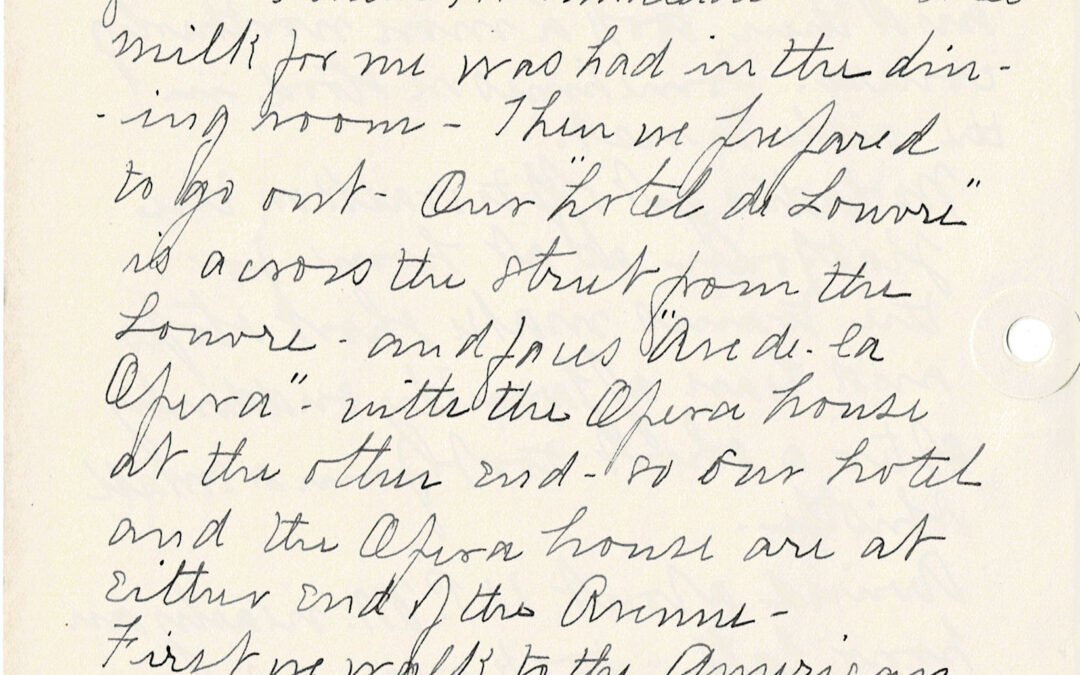 milk for me was had in the din-
-ing room - Then we prepared
to go out - Our "hotel de Louvre"
is across the street from the
Louvre - and faces "Ave de - la
Opera" - with the Opera house
at the other end - so our hotel
and the Opera house are at
either end of the Avenue -
First we walk to the American